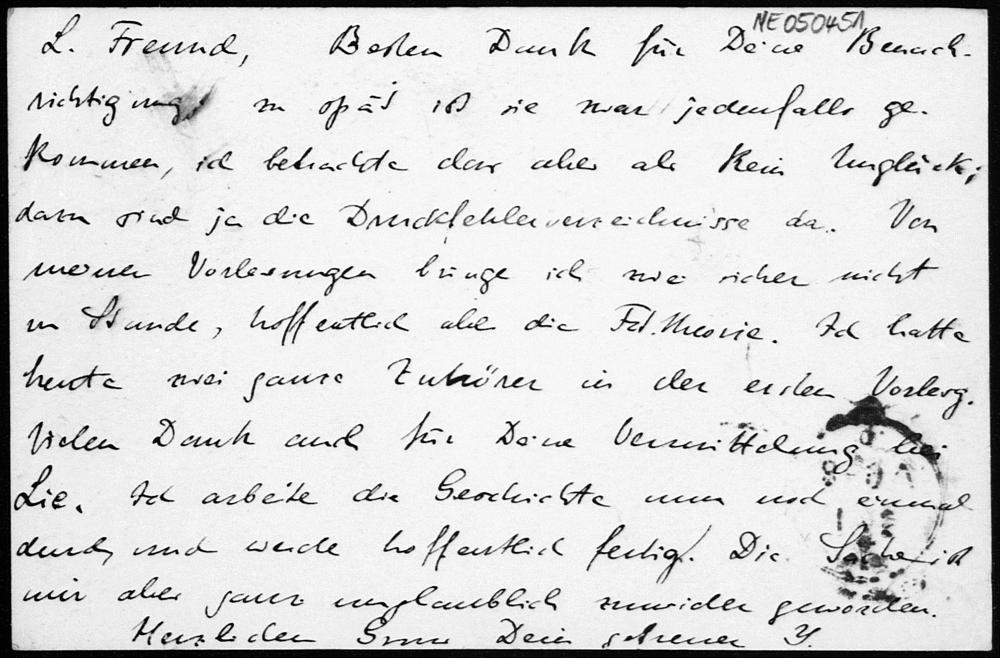 NE050451
L. Freund, Besten Dank für Deine Benach-
richtigung; zu spät ist sie zwar jedenfalls ge-
kommen, ich betrachte das aber als kein Unglück;
dazu sind ja die Druckfehlerverzeichnisse da. Von
meinen Vorlesungen bringe ich zwei sicher nicht
zu Stande, hoffentlich aber die Fct.theorie. Ich hatte
heute zwei ganze Zuhörer in der ersten Vorlesg.
Vielen Dank auch für Deine Vermittelung bei
Lie. Ich arbeite die Geschichte nun noch einmal
durch, und werde hoffentlich fertig. Die Sache ist
mir aber ganz unglaublich zuwider geworden.
Herzlichen Gruss Dein getreuer